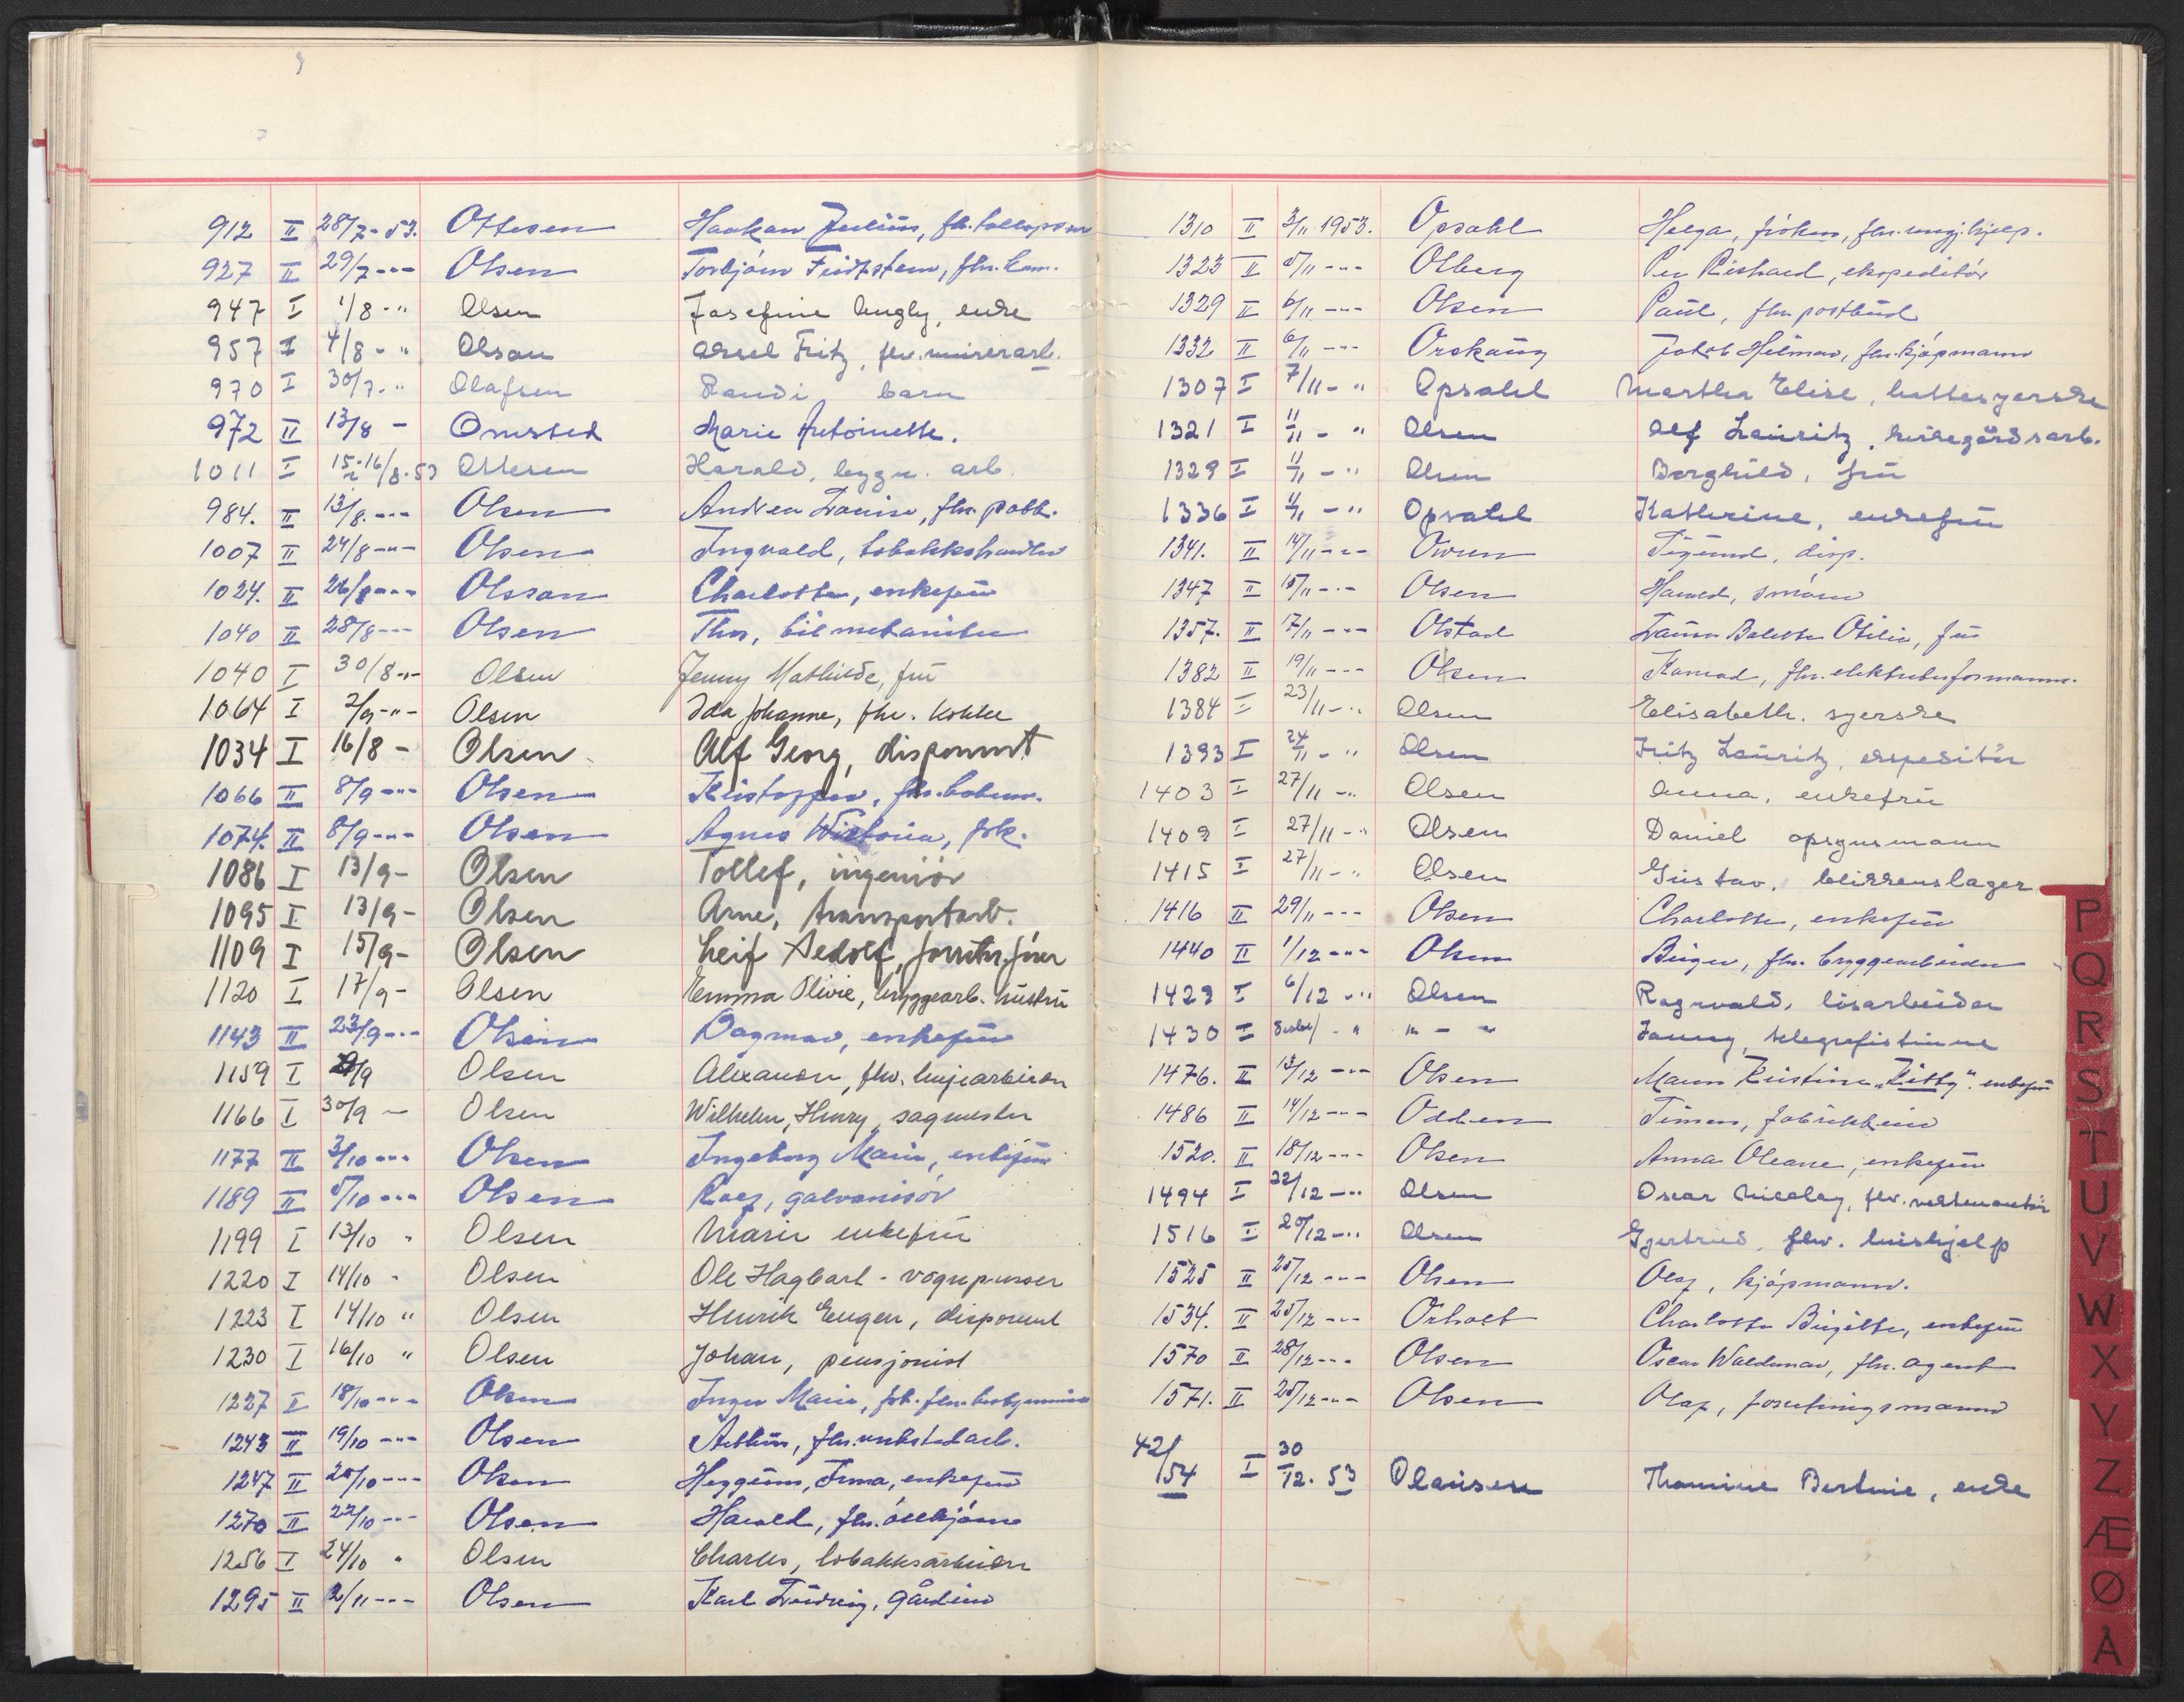 912 II 28/7-53. Ottesen Haakon Julius, fhv.
927 II 29/7 -"- Olsen Torbjørn, fhv.
947 I 1/8 -" Olsen Josefine, enke
957 I 4/8 - " Olsen Aksel Fritz, fhv. murerarb.
970 I 30/7. " Olafsen Randi barn
972 II 13/8 - Omsted Marie Antoinette.
1011 I 15-16/8.53 Ottesen Harald, bygn. arb.
984. II 13/8. -"- Olsen Andrea Louise, fhv.
1007 II 24/8 -"- Olsen Ingvald, tobakkshandler
1024. II 26/8 -"- Olsson Charlotte, enkefrü
1040 II 28/8 -"- Olsen Thor, bilmekaniker
1040 I 30/8 -"- Olsen Jenny Mathilde, frü
1064 I 2/9 -"- Olsen Ida Johanne, fhv. kokke
1034 I 16/8 - Olsen Alf Georg, disponent
1066 II 8/9 -"- Olsen Kristoffer, fhv.
1074. II 8/9 -"- Olsen Agnes Victoria, frk.
1086 I 13/9 - Olsen Tollef, ingeniør
1095 I 13/9 - Olsen Arne, transportarb.
1109 I 15/9 - Olsen Leif Aedolf,
1120 I 17/9 - Olsen Emma Olivie, bryggearb. hüstrü
1143 II 23/9 -"- Olsen Dagmar, enkefrü
1159 I /9 Olsen Alexander, fhv. linjearbeider
1166 I 30/9 - Olsen Wilhelm, Henry, sagmester
1177 II 3/10 -"- Olsen Ingeborg Marie, enkefrü
1189 II 5/10 -"- Olsen Roef, galvanisør
1199 I 13/10 " Olsen Marie enkefrü
1220 I 14/10 " Olsen Ole Hagbart - vognpusser
1223 I 14/10 " Olsen Henrik Eugen, disponent
1230 I 16/10 " Olsen Johan, pensjonist
1227 I 18/10 -"- Olsen Inger Marie, frk. fhv.
1243 II 19/10 -"- Olsen Arthur, fhv. verkstedarb.
1247 II 20/10 -"- Olsen Heggum, Irma, enkefrü
1270 II 22/10 -"- Olsen Harald, fhv. ølkjører
1256 I 24/10 " Olsen Charles, tobakksarbeider
1295 II 2/11 -"- Olsen Karl Lüdvig, gårdeier
1310 II 3/11 1953. Opsahl Helga, frøken, fhv. rengj.hjelp.
1323 II 5/11 -"- Olberg Per Richard, ekspeditør
1329 II 6/11 -"- Olsen Paül, fhv. postbüd
1332 II 6/11 -"- Orskaug Jakob Hilmar, fhv. kjøpmann
1307 I 7/11 - " Opsahl Martha Elise, hattesyerske
1321 I 11/11 - " Olsen Alf Laüritz, kirkegårdsarb.
1329 I 11/11 - " Olsen Borghild, frü
1336 I 11/11 - " Opsahl Kathrine, enkefrü
1341. II 14/11 -"- Owren Sigurd, disp.
1347 II 15/11 -"- Olsen Harald, smører
1357. II 17/11 -"- Olstad Laüra Otilie, frü
1382 II 19/11 -"- Olsen Konrad, fhv. elektrikerformann.
1384 I 23/11 -" Olsen Elisabeth. syerske
1393 I 24/11 - " Olsen Fritz Laüritz, ekspeditør
1403 I 27/11 -" Olsen Anna, enkefrü
1409 I 27/11 -" Olsen Daniel opsynsmann
1415 I 27/11 -" Olsen Güstav, blikkenslager
1416 II 29/11 -"- Olsen Charlotte, enkefrü
1440 II 1/12 -"- Olsen Birger, fhv. bryggearbeider
1429 I 6/12 -" Olsen Ragnvald, løsarbeider
1430 I - " " - " Jenny, telegrafistinne
1476. II 13/12 -"- Olsen Maren Kristine "Kitty". enkefrü
1486 II 14/12 -"- Odden Simen, fabrikkeier
1520. II 18/12 -"- Olsen Anna Oleane, enkefrü
1494 I 22/12 -" Olsen Oscar Nicolay, fhv.
1516 I 20/12 -" Olsen Gjertrüd, fhv. hüshjelp
1525 II 25/12 -"- Olsen Olaf, kjøpmann.
1534. II 25/12 -"- Orholt Charlotte Birgitte, enkefrü
1570 II 28/12 -"- Olsen Oscar Waldemar, fhv. agent
1571. II 25/12 -"- Olsen Olaf, forretningsmann
42/54 I 30/12. 53 Olaüsen Thomine Bertine, enke
P
Q
R
S
T
U
V
W
X
Y
Z
Æ
Ø
Å